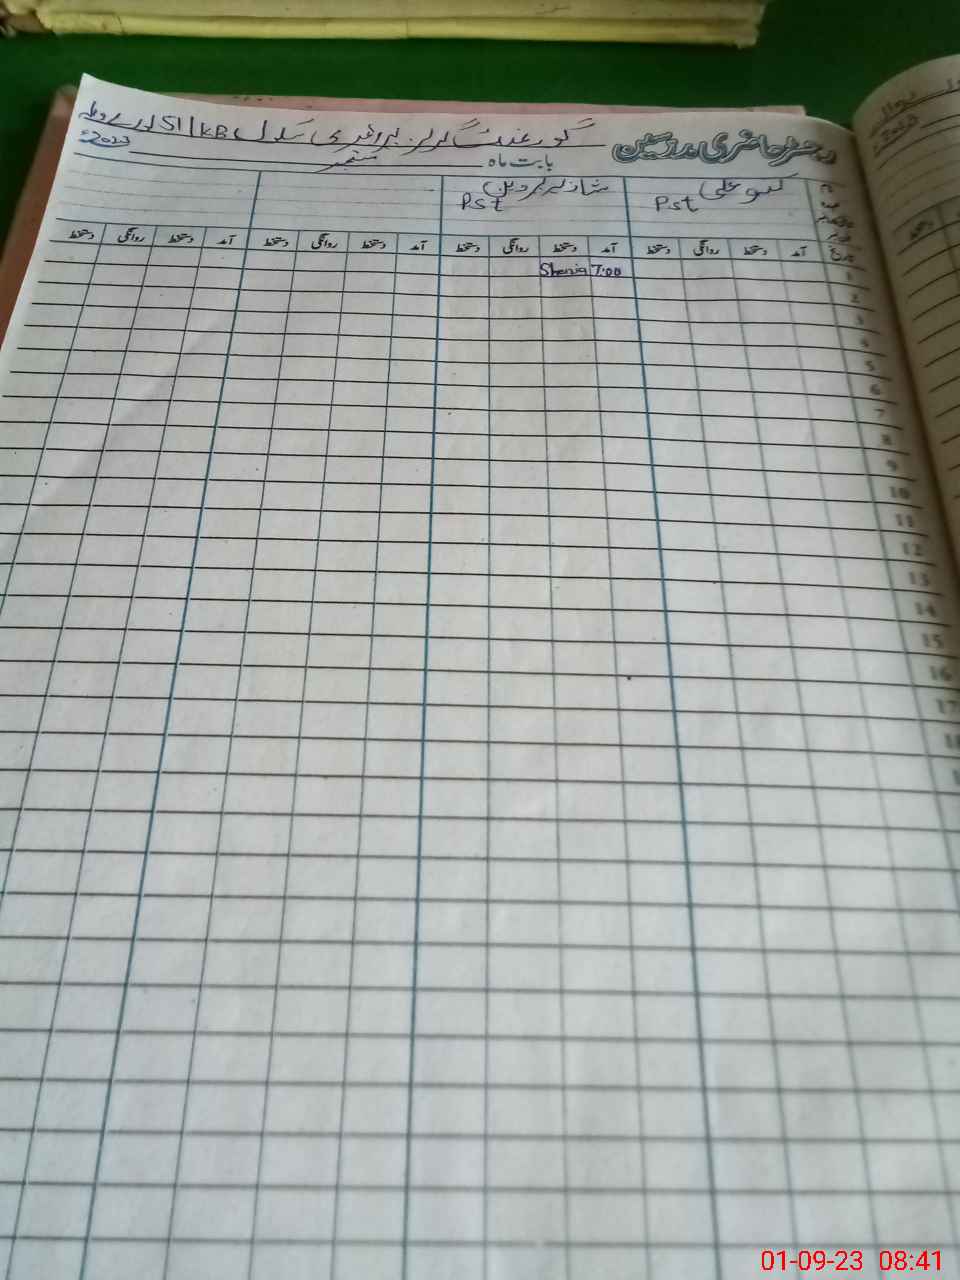 رجسٹر حاضری مدرسین گورنمنٹ گرلز پرائمری سکول 511/KB
بابت ماہ ستمبر 2023ء
علی
Pst
شازیہ پروین
Pst
تاریخ آمد دستخط روانگی دستخط آمد دستخط روانگی دستخط آمد دستخط روانگی دستخط آمد دستخط روانگی دستخط
1 7:00 Shazia
2
3
4
5
6
7
8
9
10
11
12
13
14
15
16
17
01-09-23 08:41